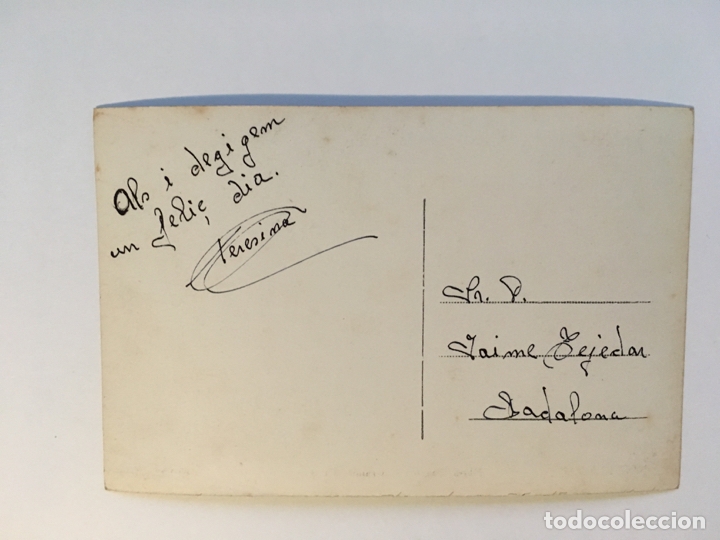 Als i degigem
un feliç dia.
Teresina
Sr. D.
Jaime Tejedor
Badalona
todocoleccion.net